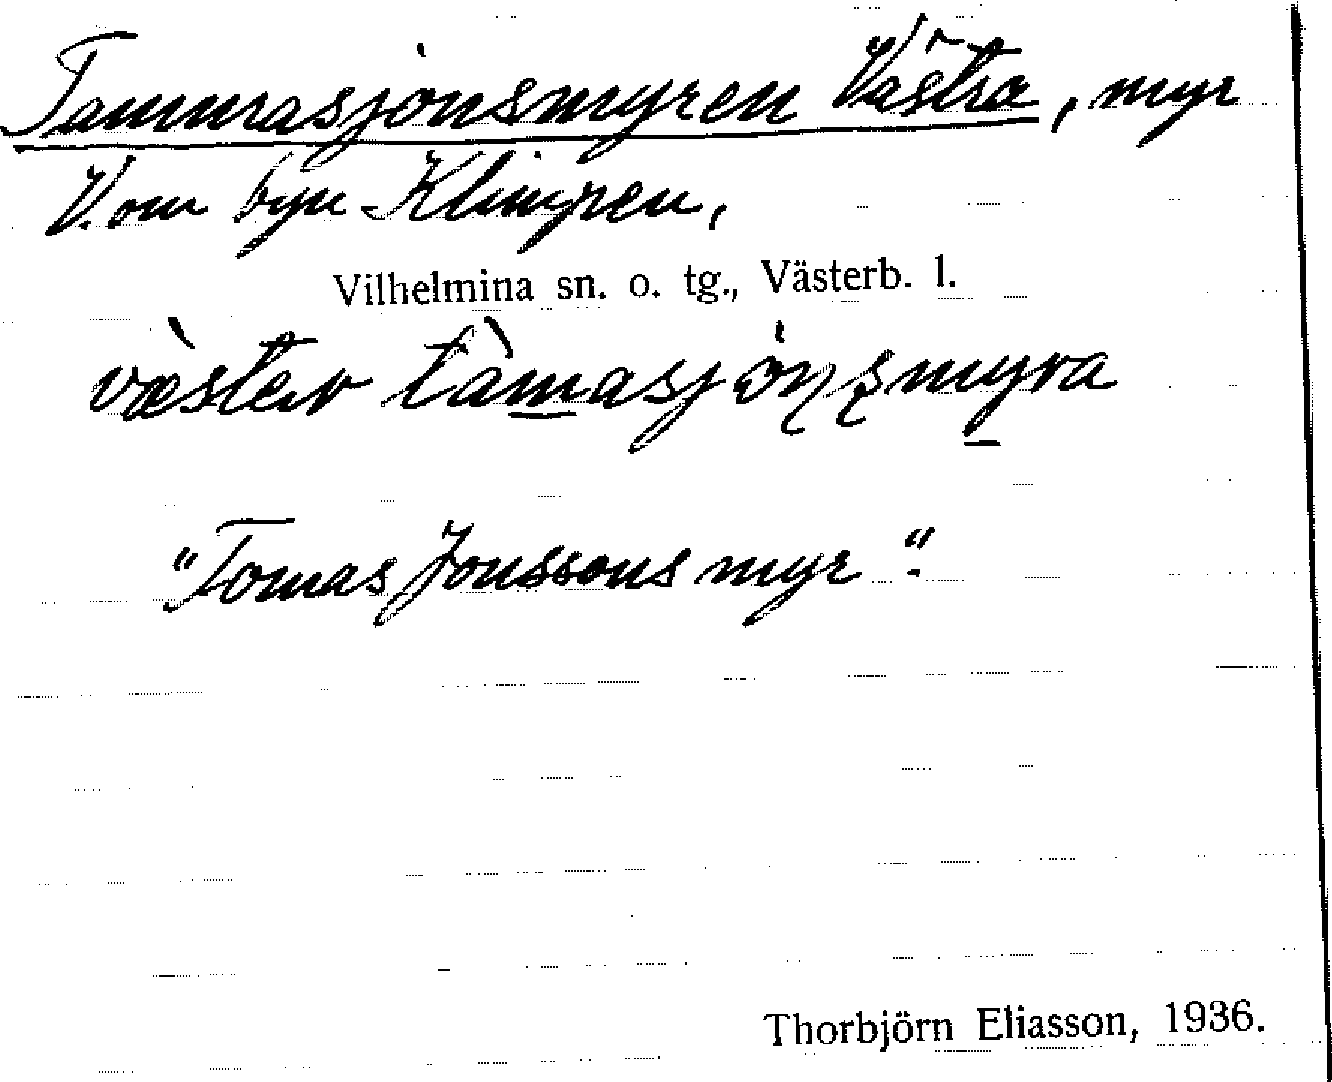 Tammrasjonsmyren Västra, myr
V. om byn Klimpen,
Vilhelmina sn. o. tg., Västerb. l.
væ̀ster tàmasjoṇṣmyra
"Tomas Jonssons myr".
Thorbjörn Eliasson, 1936.